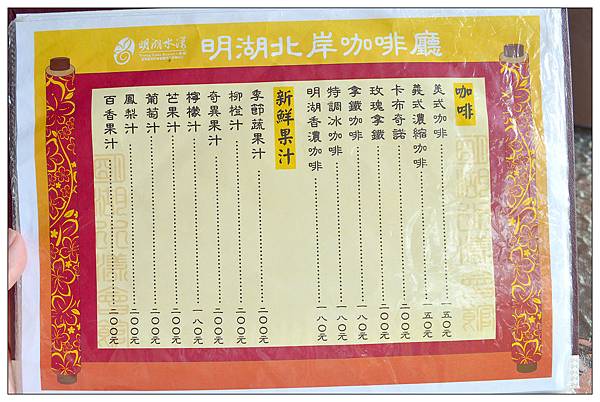 明湖水漾
明湖北岸咖啡廳
咖啡
美式咖啡……一五〇元
義式濃縮咖啡……一五〇元
卡布奇諾……二〇〇元
玫瑰拿鐵……二〇〇元
拿鐵咖啡……一八〇元
特調冰咖啡……一八〇元
明湖香濃咖啡……一八〇元
新鮮果汁
季節蔬果汁……二〇〇元
柳橙汁……二〇〇元
奇異果汁……二〇〇元
檸檬汁……一八〇元
芒果汁……二〇〇元
葡萄汁……二〇〇元
鳳梨汁……二〇〇元
百香果汁……二〇〇元